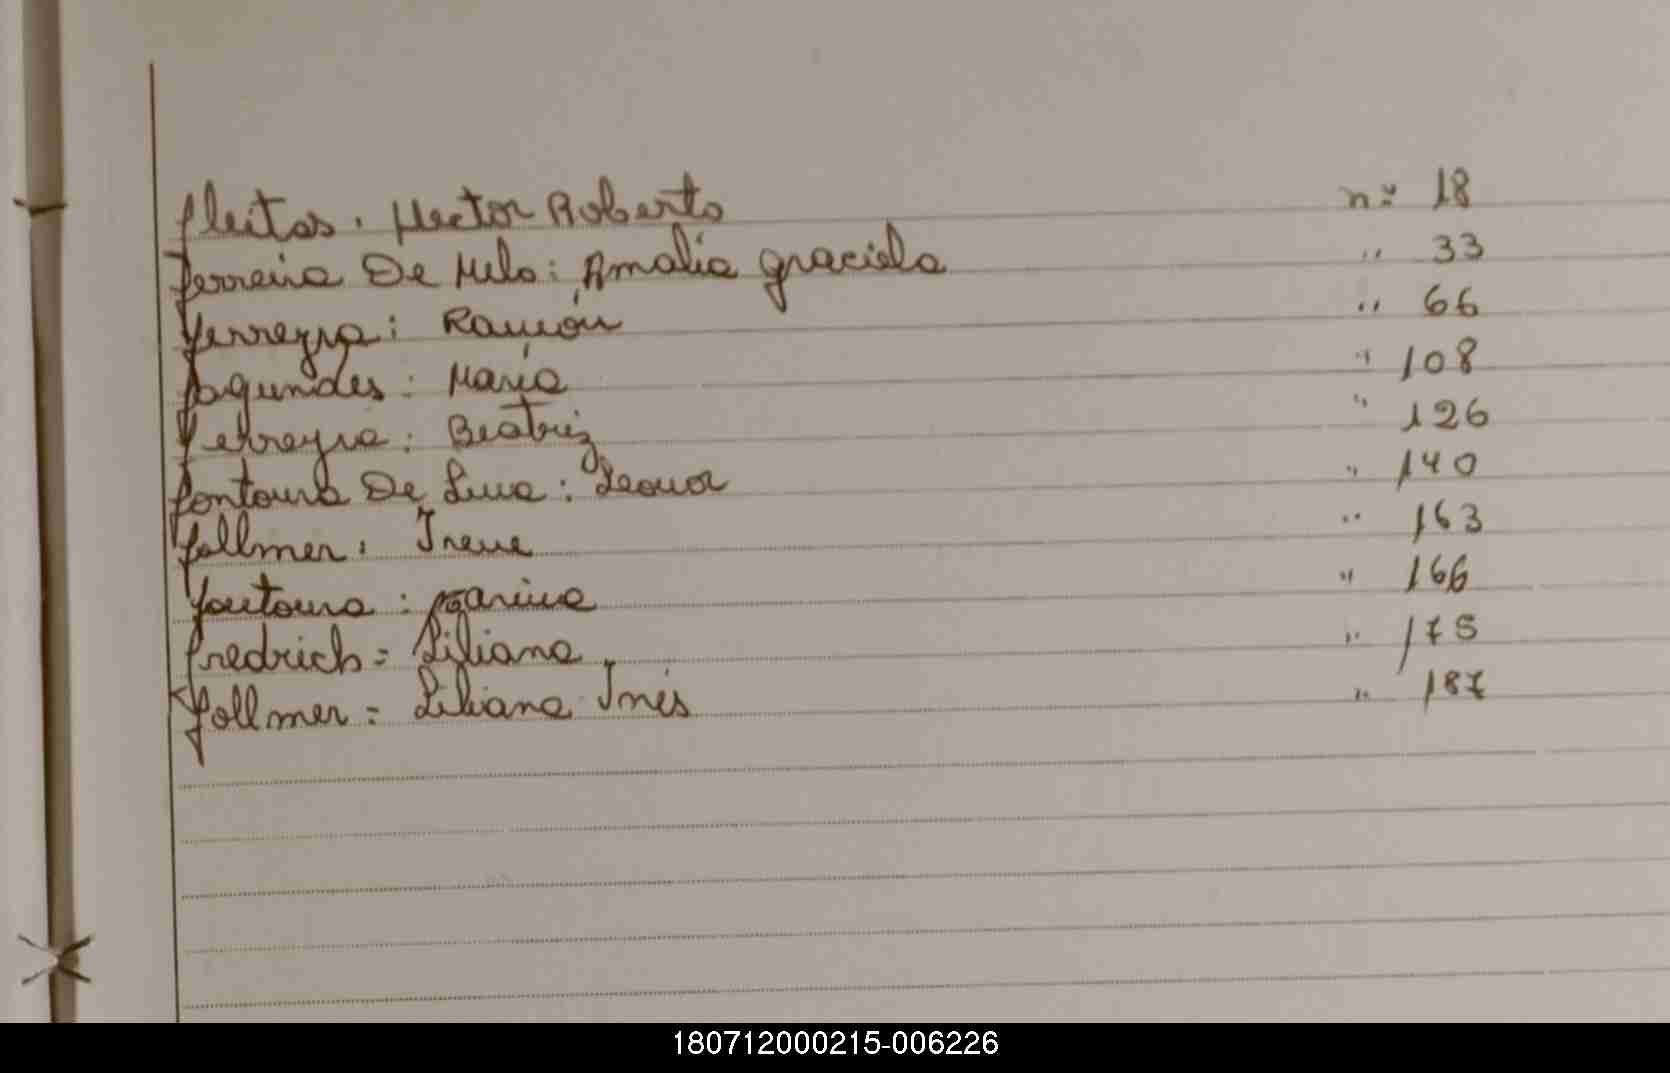 fleitas. Hector Roberto nº 18
ferreira De Melo: Amalia graciela " 33
ferreyra: Ramón " 66
fagundes: María " 108
ferreyra: Beatriz " 126
fontoura De Lima: Leonor " 140
follmer: Irene " 163
fontoura: Marina " 166
fredrich= Liliana " 175
follmer= Liliana Inés " 187
180712000215-006226